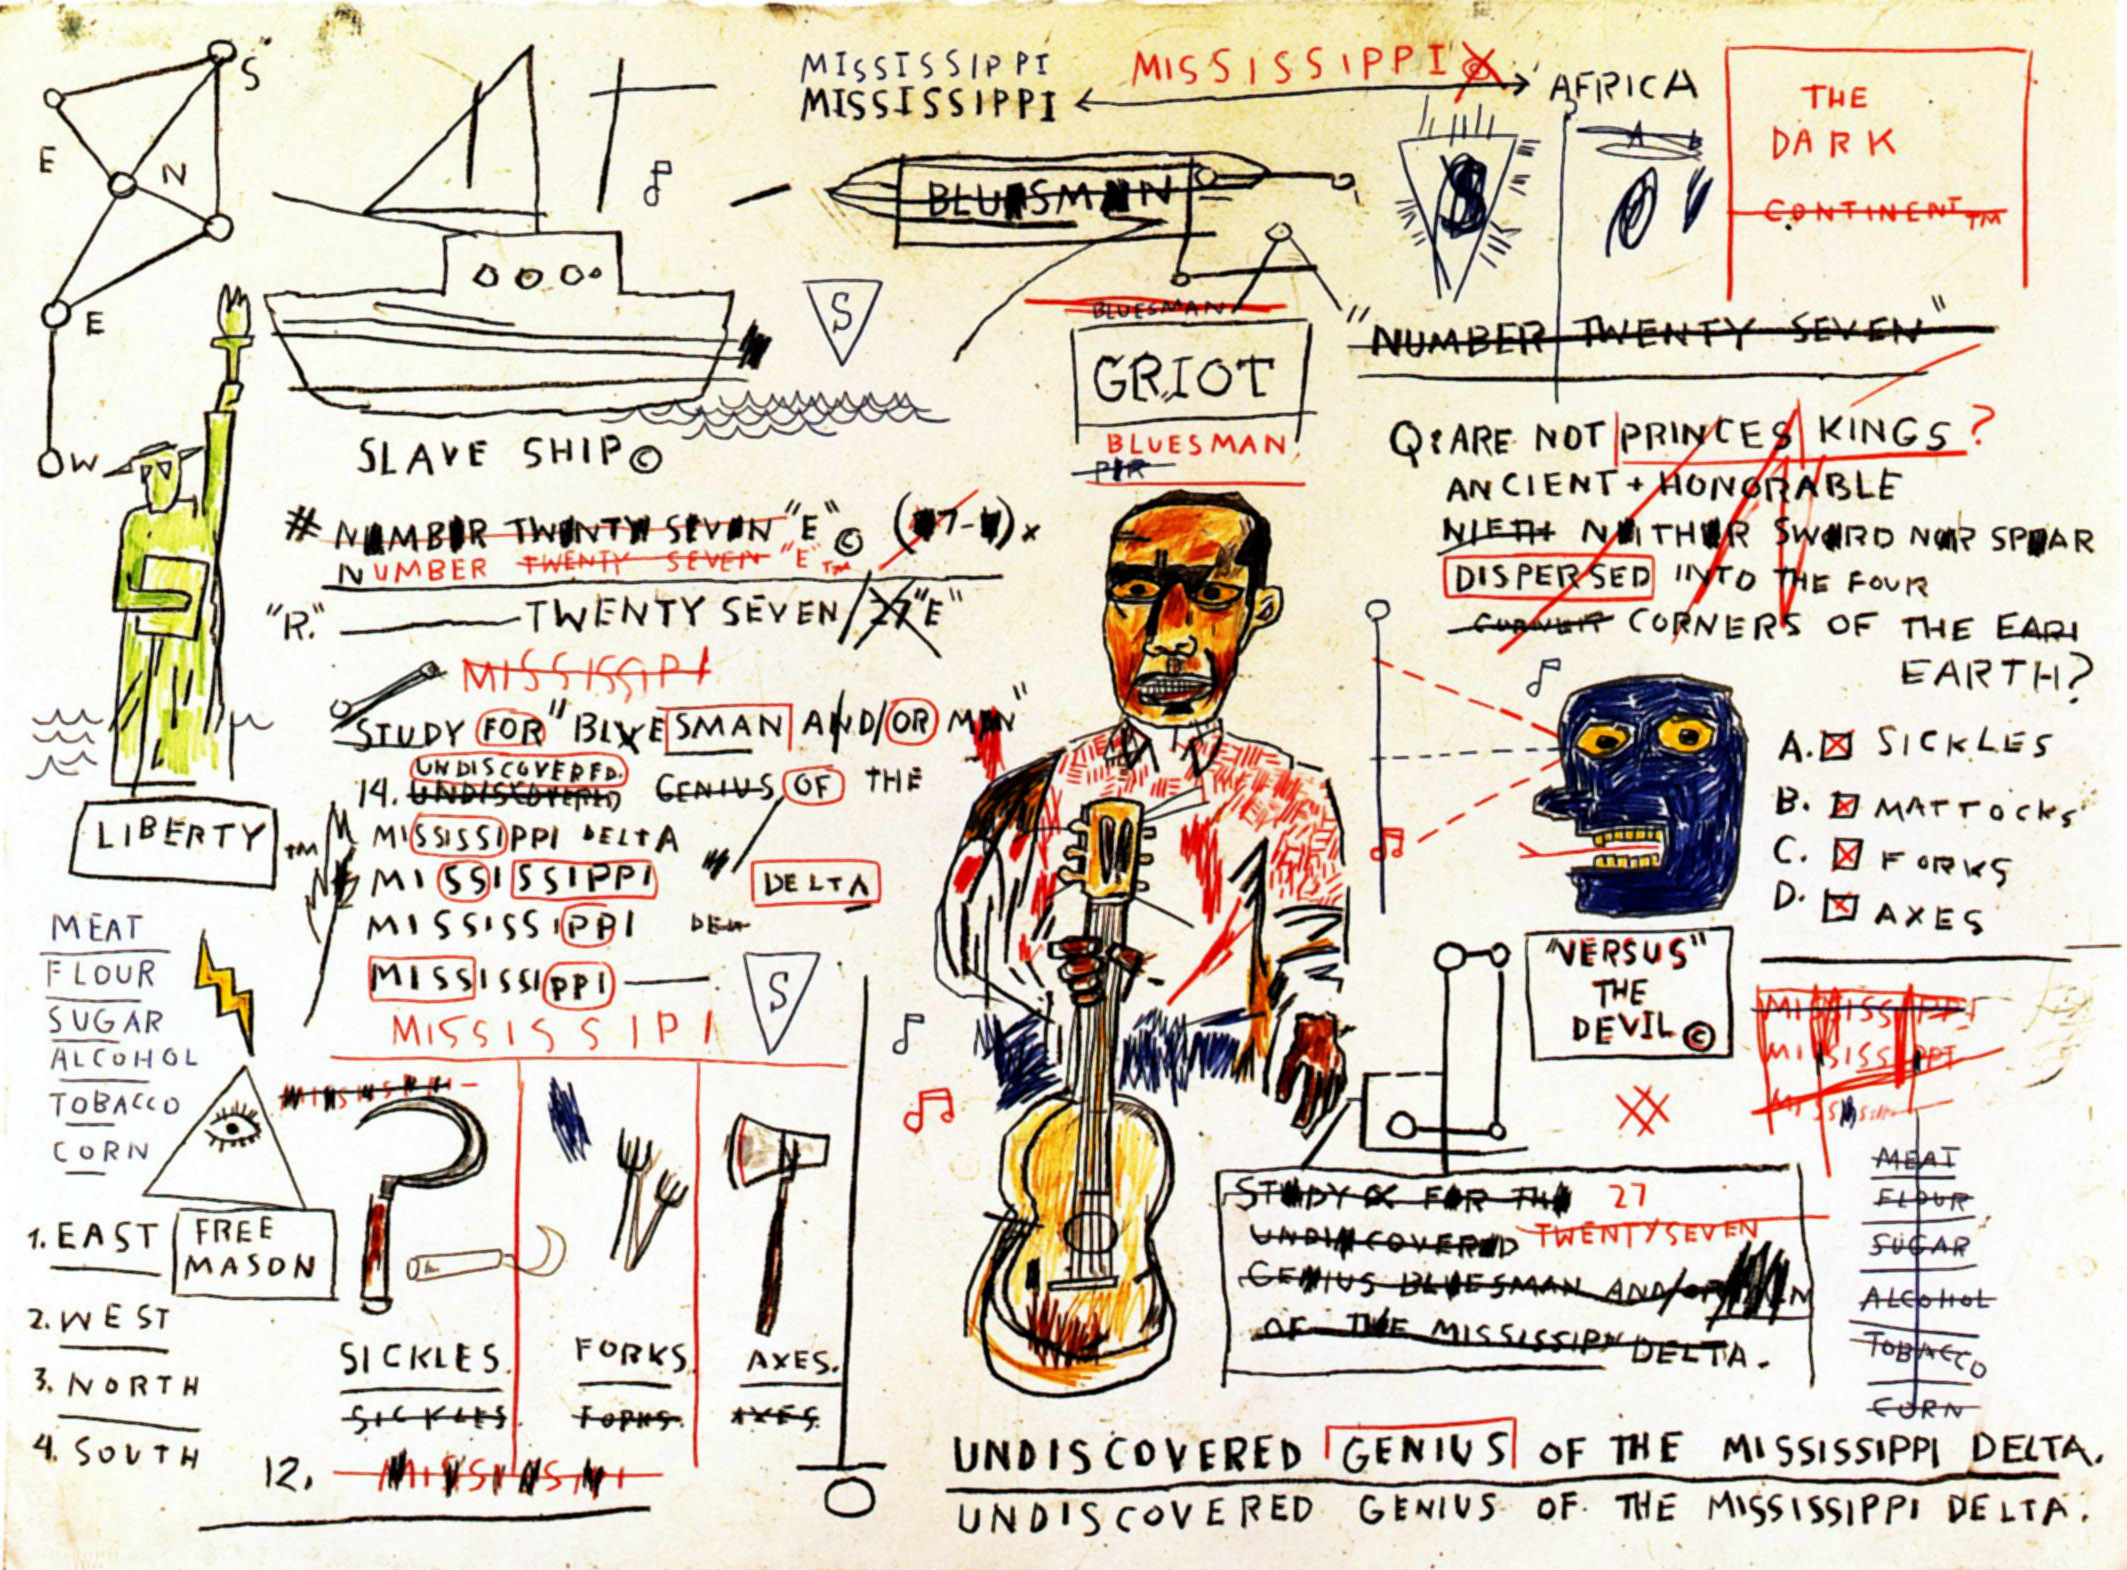 S
E
N
E
W
MISSISSIPPI
MISSISSIPPI
MISSISSIPPI
AFRICA
THE
DARK
CONTINENT™
BLUESMAN
S
BLUESMAN
GRIOT
BLUESMAN
"NUMBER TWENTY SEVEN"
SLAVE SHIP©
# NUMBER TWENTY SEVEN "E"©
NUMBER TWENTY SEVEN "E"™
"R." TWENTY SEVEN/27"E"
Q: ARE NOT PRINCES KINGS?
ANCIENT + HONORABLE
NIETH NEITHER SWORD NOR SPEAR
DISPERSED INTO THE FOUR
CORNERS OF THE EARI
EARTH?
A. SICKLES
B. MATTOCKS
C. FORKS
D. AXES
MISSISSIPI
STUDY FOR "BLUESMAN AND/OR MAN"
UNDISCOVERED.
14. UNDISCOVERED GENIUS OF THE
MISSISSIPPI DELTA
MISSISSIPPI DELTA
MISSISSIPPI
MISSISSIPPI
S
MISSISSIPI
LIBERTY™
MEAT
FLOUR
SUGAR
ALCOHOL
TOBACCO
CORN
FREE
MASON
1. EAST
2. WEST
3. NORTH
4. SOUTH
SICKLES.
SICKLES
FORKS.
FORKS.
AXES.
AXES.
12.
"VERSUS"
THE
DEVIL©
MISSISSIPPI
MISSISSIPPI
STUDY FOR THE 27
UNDISCOVERED TWENTYSEVEN
GENIUS BLUESMAN AND/OR
OF THE MISSISSIPPI DELTA.
MEAT
FLOUR
SUGAR
ALCOHOL
TOBACCO
CORN
UNDISCOVERED GENIUS OF THE MISSISSIPPI DELTA.
UNDISCOVERED GENIUS OF THE MISSISSIPPI DELTA.